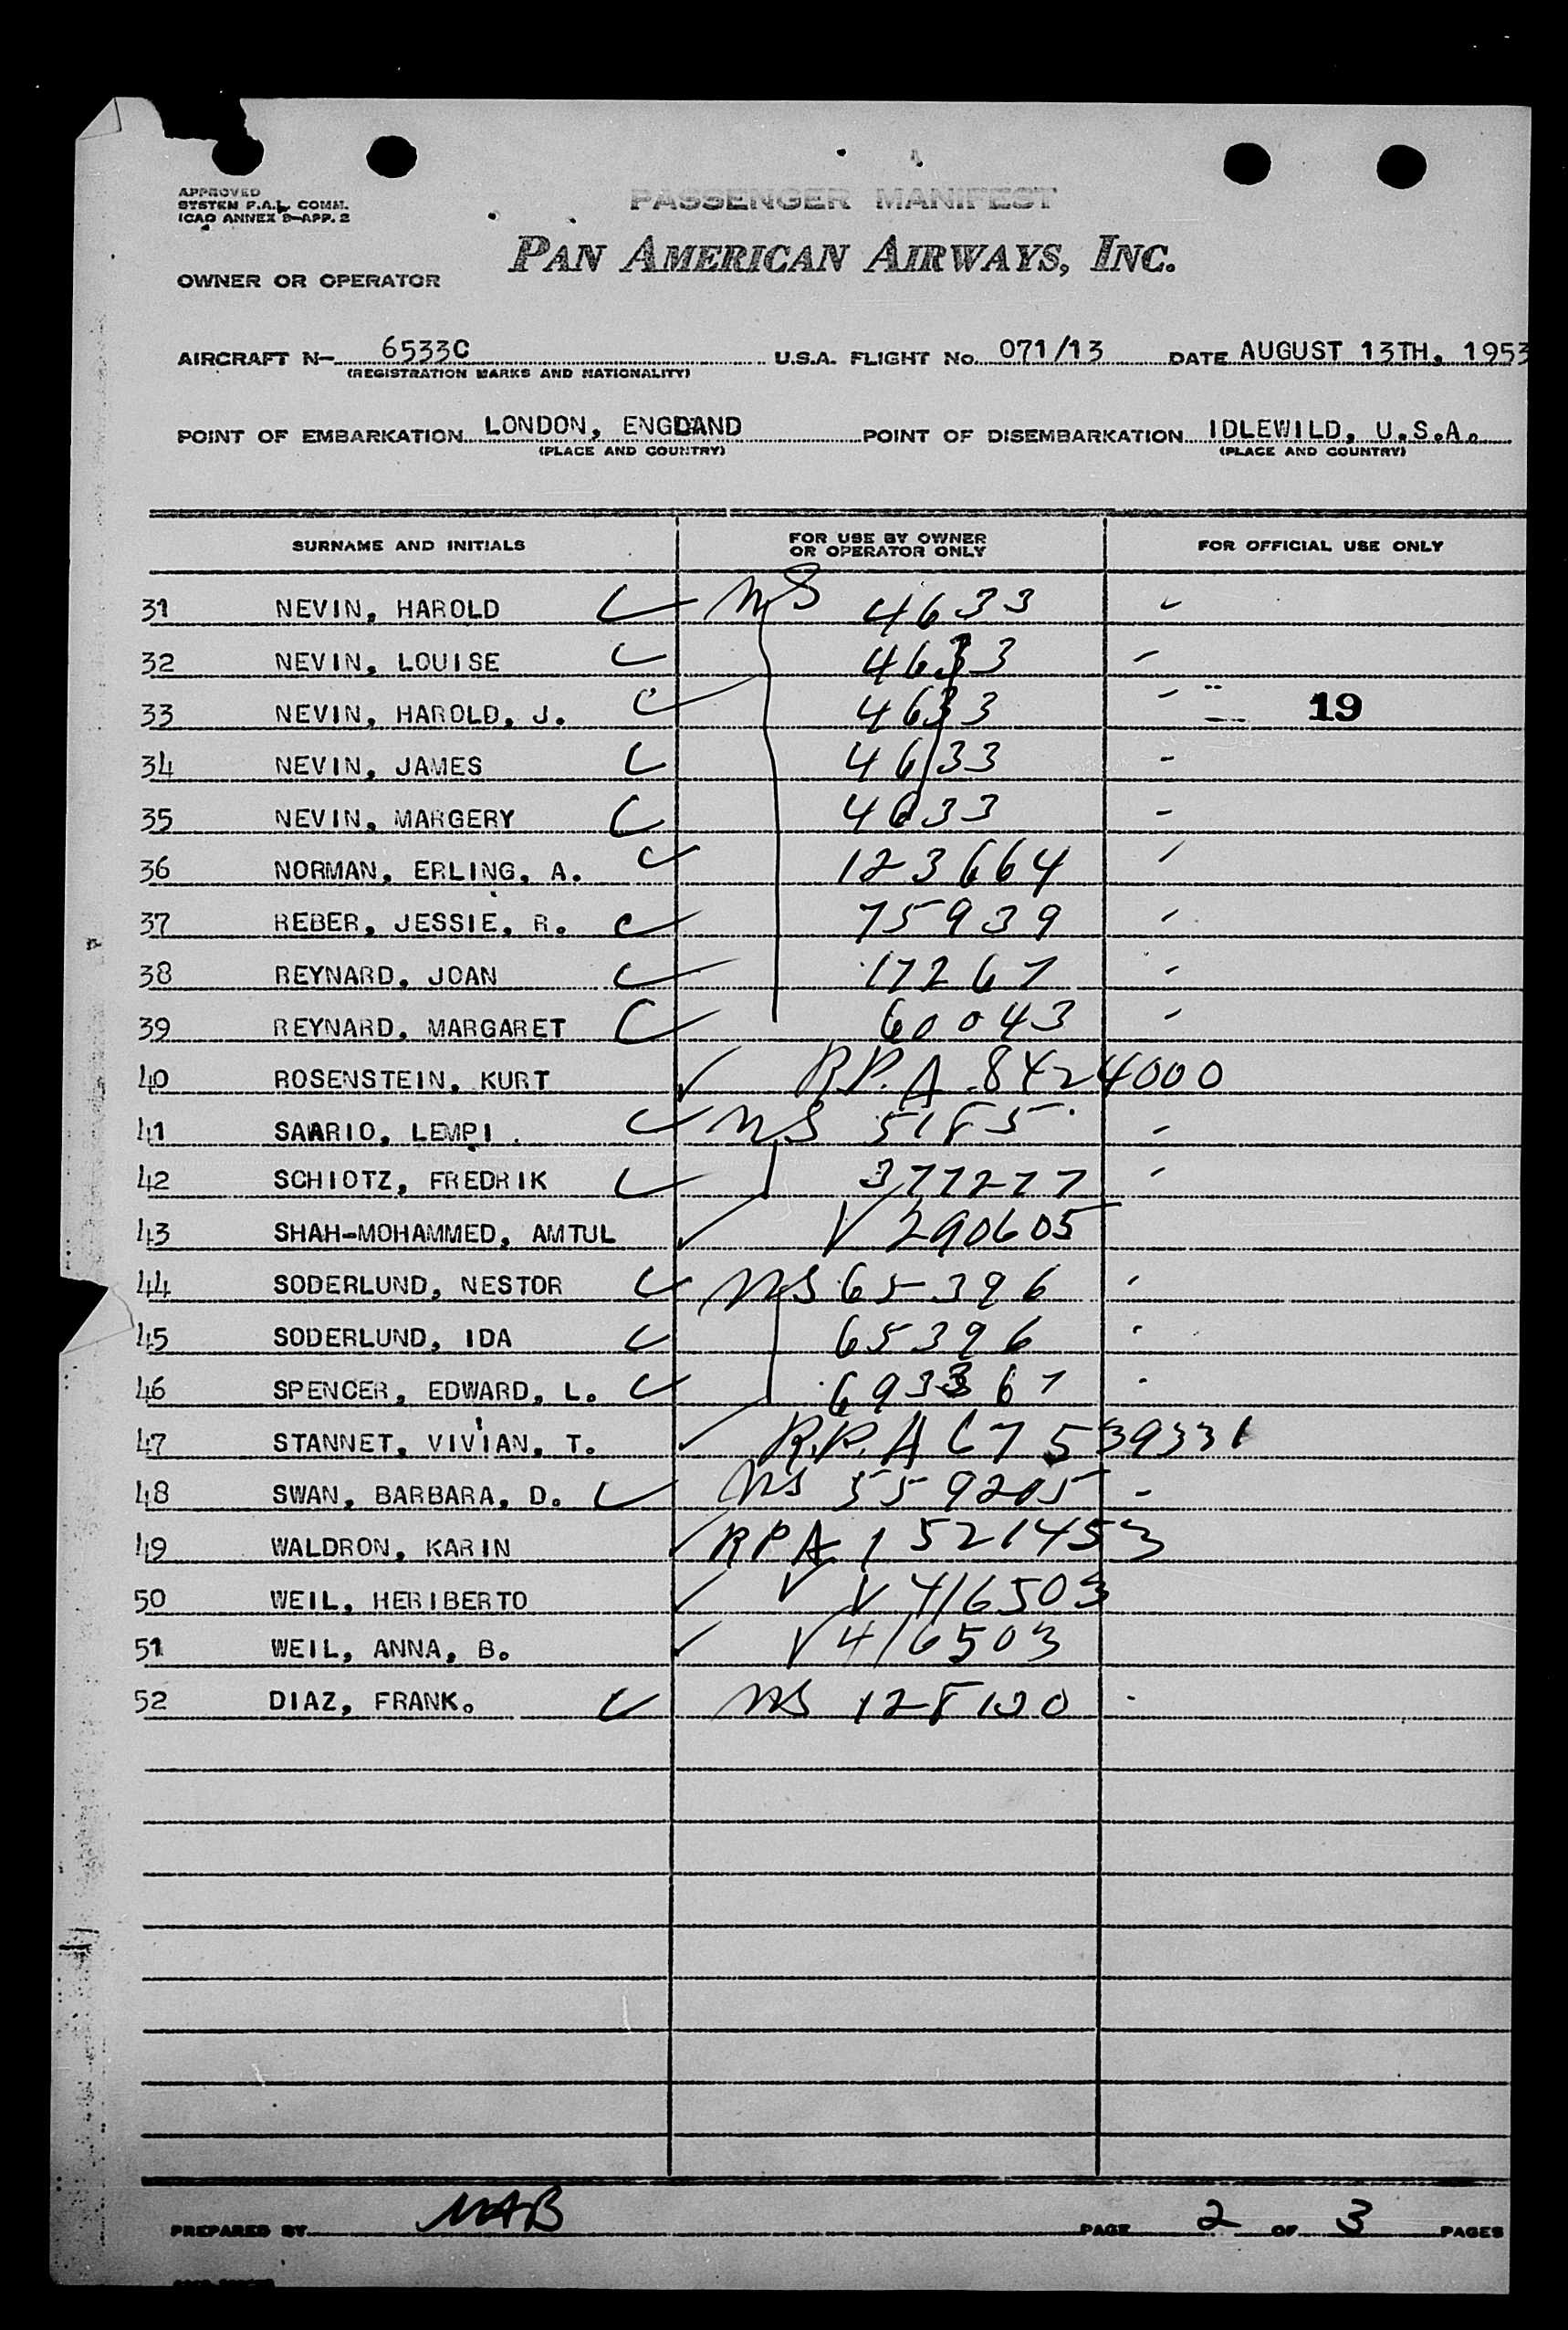 APPROVED
SYSTEM P.A.L. COMM.
ICAO ANNEX 9-APP. 2
PASSENGER MANIFEST
PAN AMERICAN AIRWAYS, INC.
OWNER OR OPERATOR
AIRCRAFT N- 6533C U.S.A. FLIGHT NO. 071/13 DATE AUGUST 13TH, 1953
(REGISTRATION MARKS AND NATIONALITY)
POINT OF EMBARKATION LONDON, ENGDAND POINT OF DISEMBARKATION IDLEWILD, U.S.A.
(PLACE AND COUNTRY) (PLACE AND COUNTRY)
SURNAME AND INITIALS FOR USE BY OWNER OR OPERATOR ONLY FOR OFFICIAL USE ONLY
31 NEVIN, HAROLD MS 4633
32 NEVIN, LOUISE 4633
33 NEVIN, HAROLD, J. 4633 19
34 NEVIN, JAMES 4633
35 NEVIN, MARGERY 4633
36 NORMAN, ERLING, A. 123664
37 REBER, JESSIE, R. 75939
38 REYNARD, JOAN 17267
39 REYNARD, MARGARET 60043
40 ROSENSTEIN, KURT R.P.A 8424000
41 SAARIO, LEMPI MS 5185
42 SCHIOTZ, FREDRIK 377277
43 SHAH-MOHAMMED, AMTUL V 290605
44 SODERLUND, NESTOR MS 65396
45 SODERLUND, IDA 65396
46 SPENCER, EDWARD, L. 693367
47 STANNET, VIVIAN, T. R.P.A 67539331
48 SWAN, BARBARA, D. MS 559205
49 WALDRON, KARIN RPA 1521453
50 WEIL, HERIBERTO V 416503
51 WEIL, ANNA, B. V 416503
52 DIAZ, FRANK. MS 128100
PREPARED BY MAB PAGE 2 OF 3 PAGES